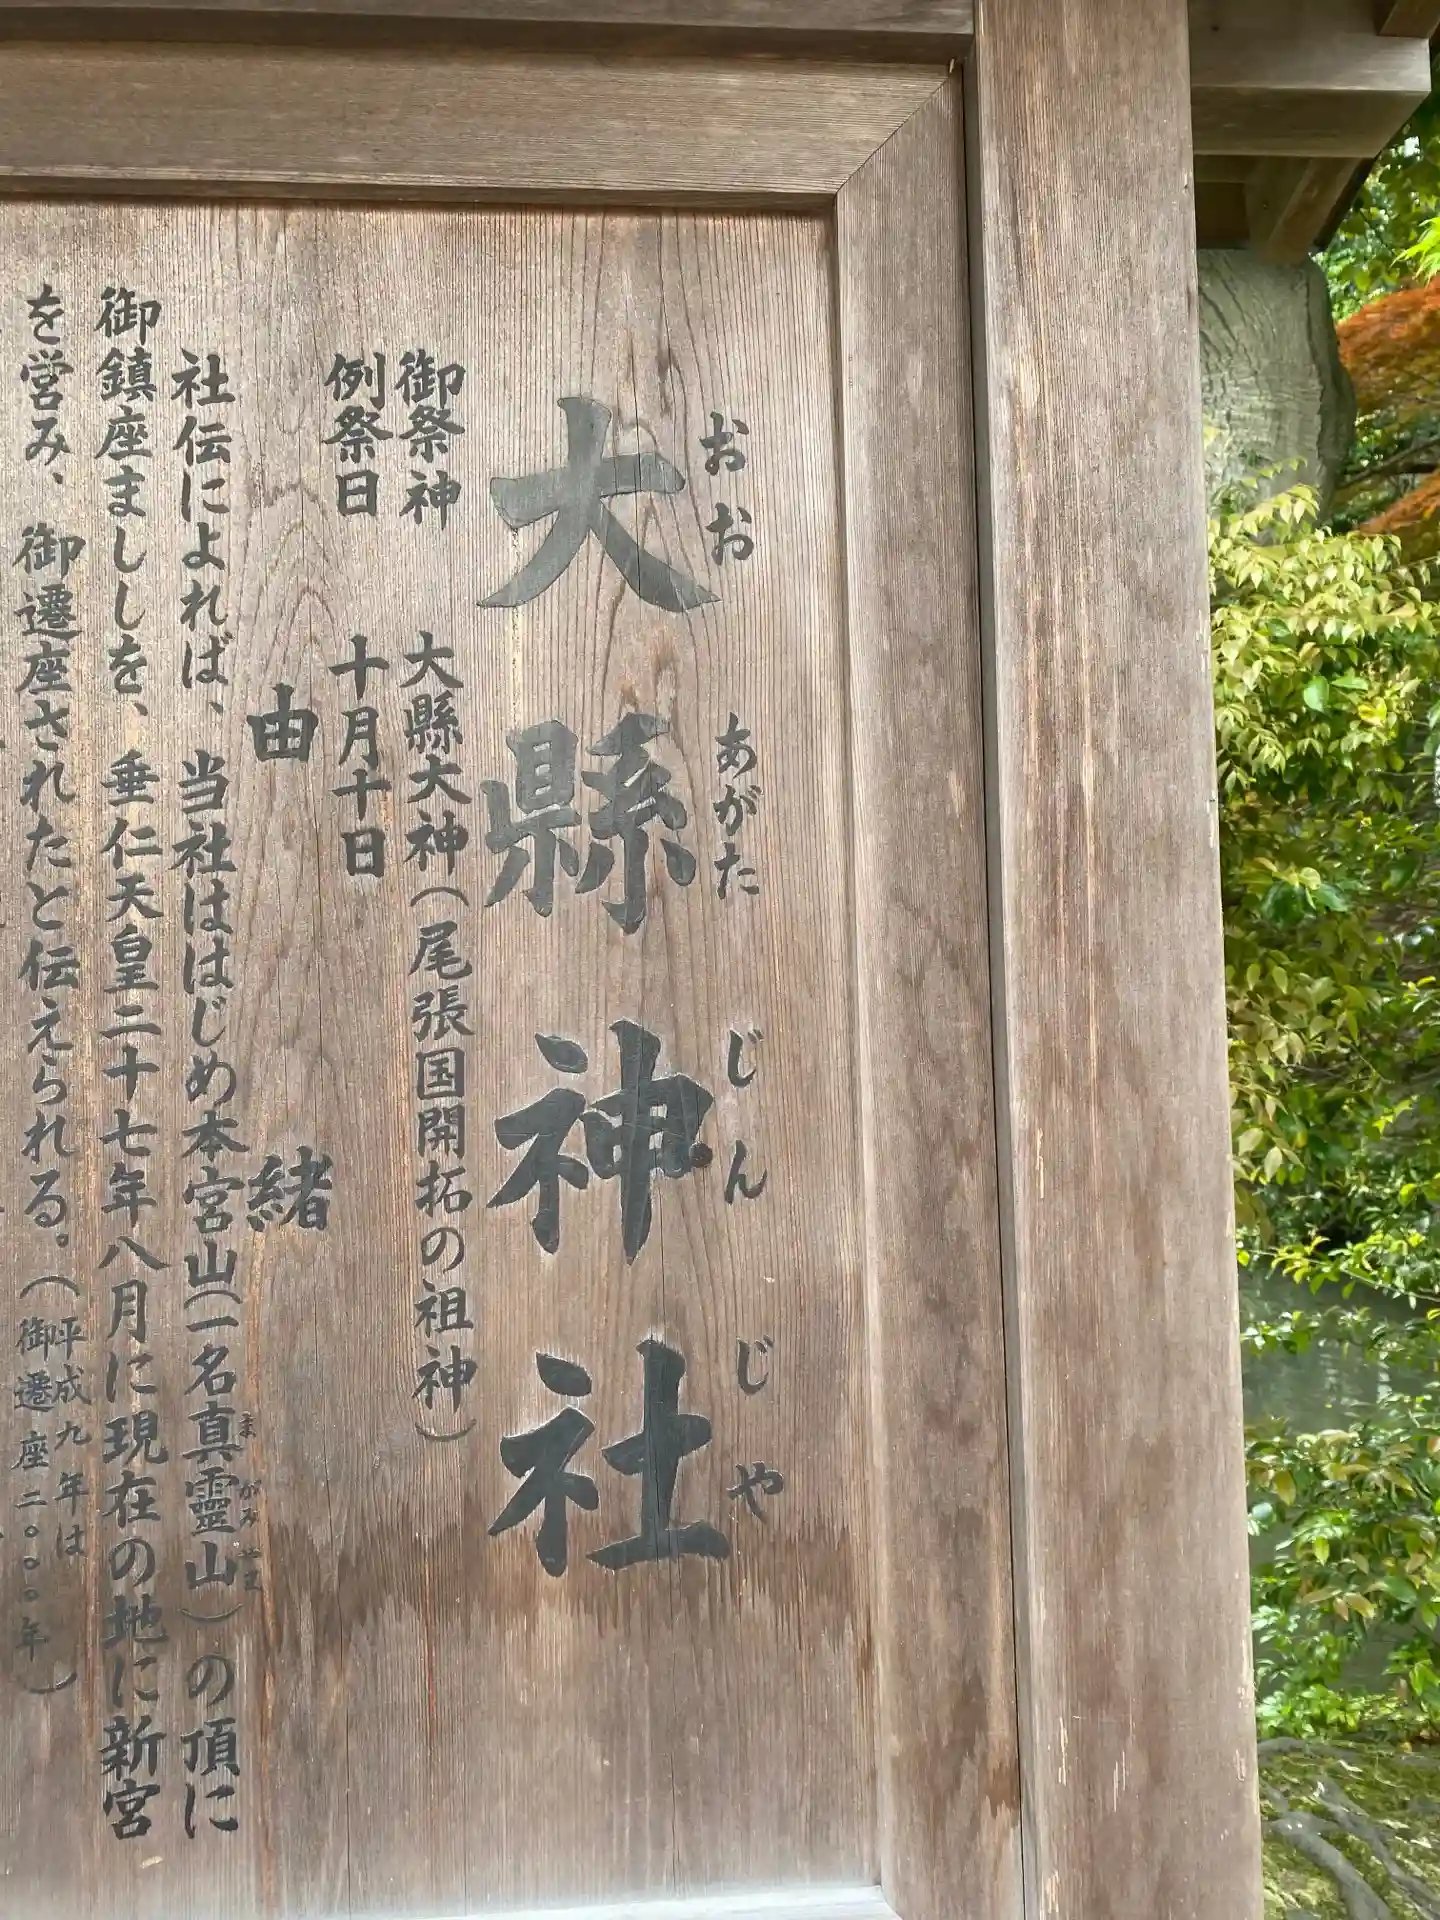 おおあがたじんじゃ
大縣神社
御祭神　大縣大神（尾張国開拓の祖神）
例祭日　十月十日
由緒
社伝によれば、当社ははじめ本宮山（一名真靈山）の頂に
御鎮座ましゝを、垂仁天皇二十七年八月に現在の地に新宮
を営み、御遷座されたと伝えられる。（平成九年は
御遷座二〇〇〇年）